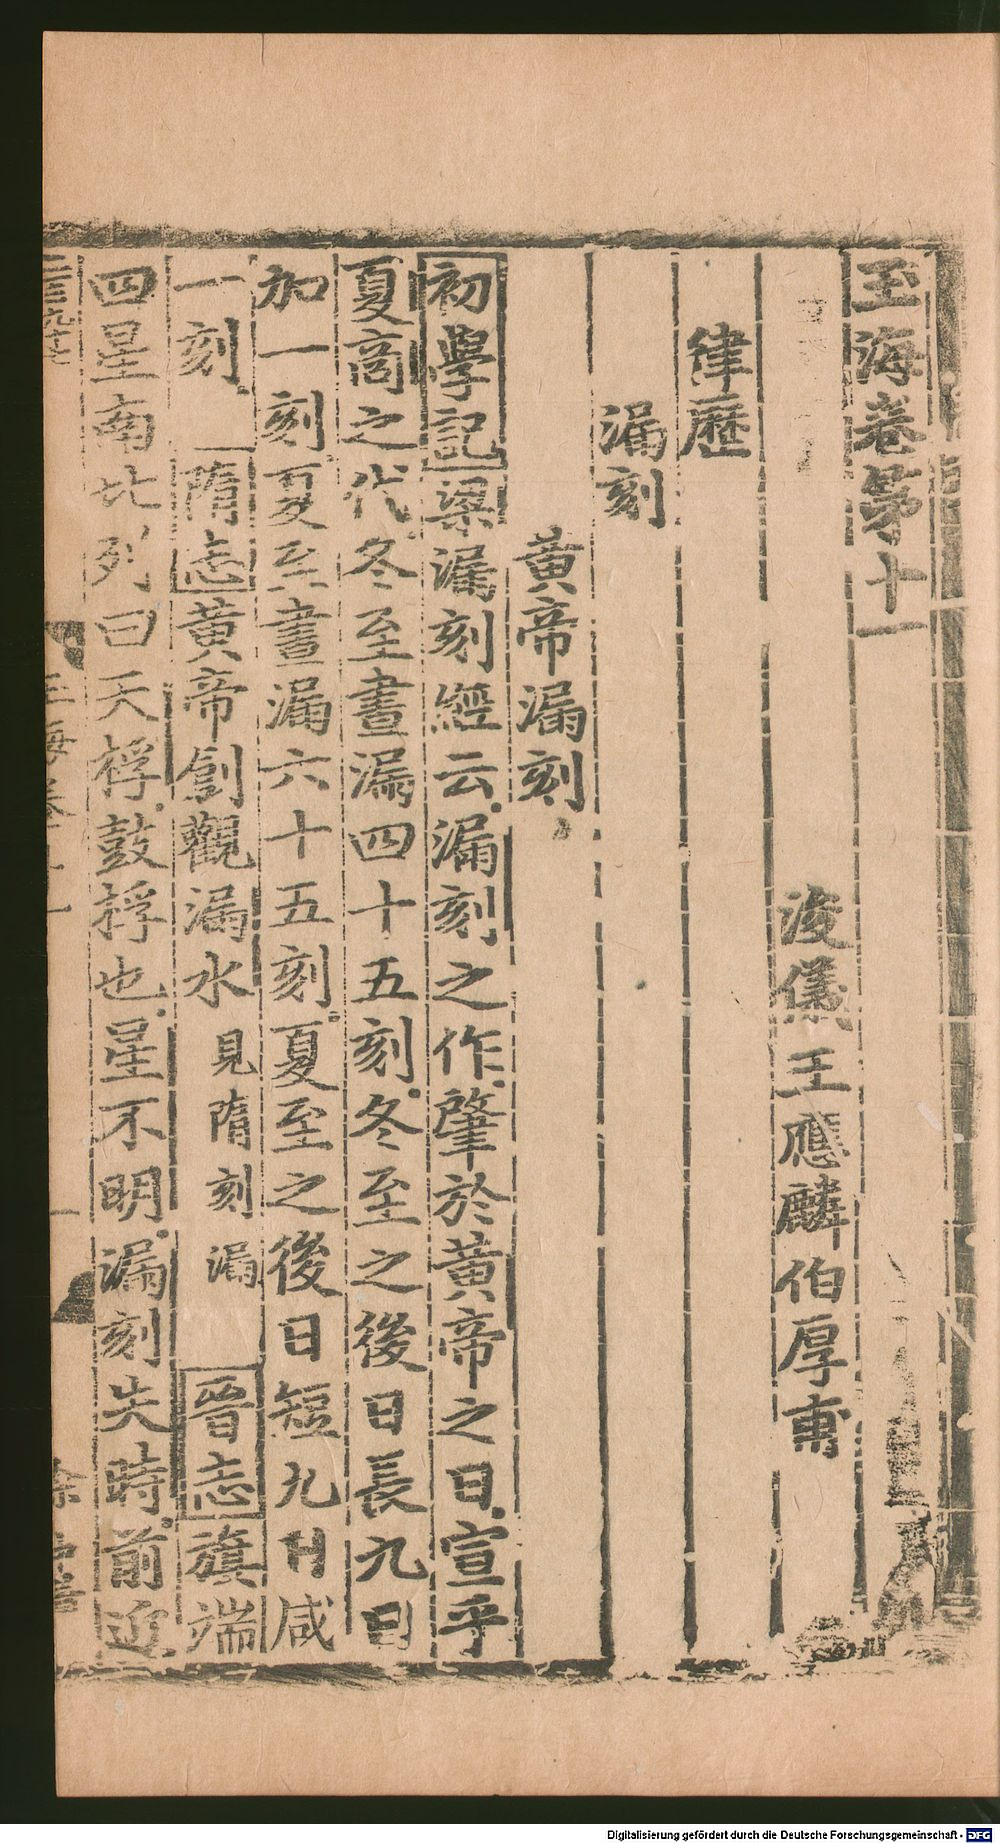 玉海卷第十一
浚儀王應麟伯厚甫
律歷
漏刻
黃帝漏刻
初學記梁漏刻經云漏刻之作肇於黃帝之日宣乎
夏商之代冬至晝漏四十五刻冬至之後日長九日
加一刻夏至晝漏六十五刻夏至之後日短九日咸
一刻 隋志黃帝創觀漏水見隋刻漏 晉志旗端
四星南北列曰天桴鼓桴也星不明漏刻失時前近
Digitalisierung gefördert durch die Deutsche Forschungsgemeinschaft - DFG